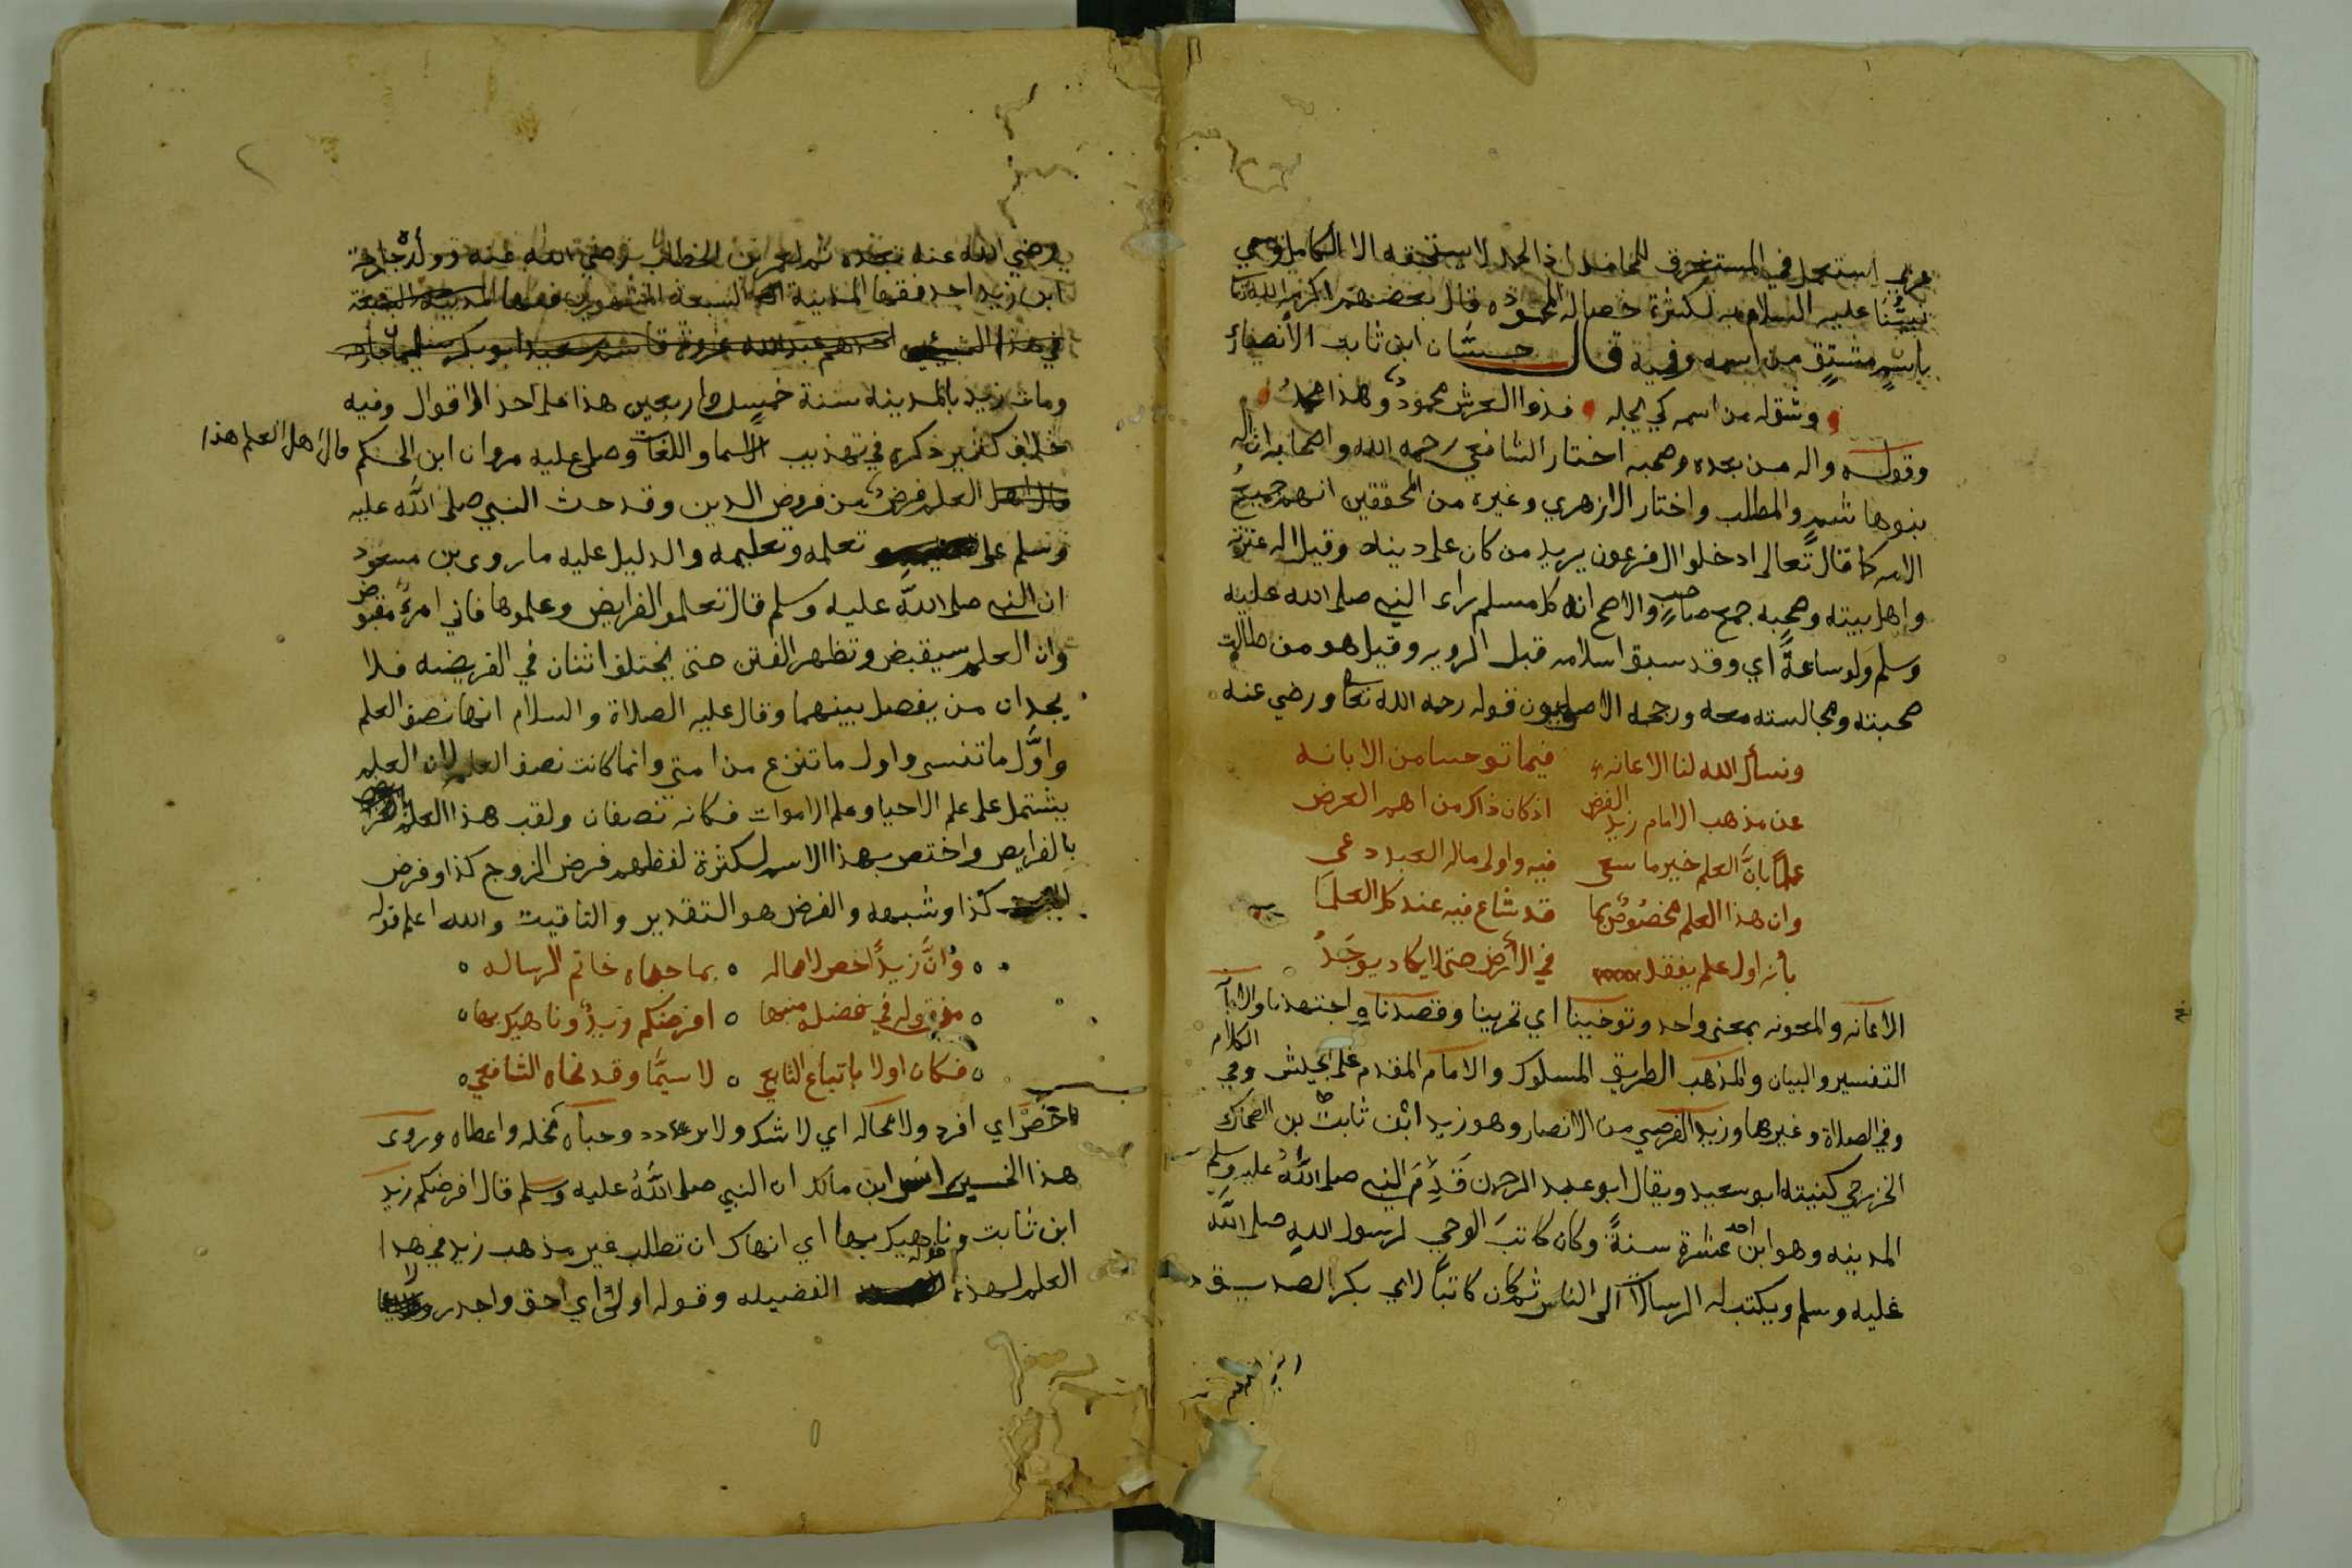 عربي استعمل في المستغرق للمحامد اذ الحمد لا يستحقه الا الكامل وسمي
نبيُّنا عليه السلام به لكثرة خصاله المحمودة قال بعضهم اكرمه الله تعالى
باسمٍ مشتقٍ من اسمه وفيه قال حسَّان ابن ثابت الأنصاري
وشق له من اسمه كي يجله فذوا العرش محمودٌ وهذا محمدُ
وقوله واله من بعده وصحبه اختار الشافعي رحمه الله واصحابه ان اله
بنوها شمٍ والمطلب واختار الازهري وغيره من المحققين انهم جميع
الامه كما قال تعالى ادخلوا ال فرعون يريد من كان على دينه وقيل اله عترته
واهل بيته وصحبه جمع صاحبٍ والاصح انه كل مسلم راى النبي صلى الله عليه
وسلم ولو ساعةً اي وقد سبق اسلامه قبل الرويه وقيل هو من طالت
صحبته ومجالسته معه ورجحه الاصوليون قوله رحمه الله تعالى ورضي عنه
ونسأل الله لنا الاعانه فيما توخينا من الابانه
عن مذهب الامام زيد الفرضي اذ كان ذاك من اهم الغرض
علمًا بانَّ العلم خير ما سعى فيه واولى ماله العبد دعي
وان هذا العلم مخصُوصٌ بما قد شاع فيه عند كل العلما
بأنه اول علم يفقد في الأرض حتى لا يكاد يوجَدُ
الاعانه والمعونه بمعنى واحد وتوخينا اي تحرينا وقصدنا واجتهدنا والابانه
التفسير والبيان والمذهب الطريق المسلوك والامام المقدم على الجيش وفي الكلام
وفي الصلاة وغيرها وزيد الفرضي من الانصار وهو زيد ابن ثابت بن الضحاك
الخزرجي كنيته ابو سعيد ويقال ابو عبد الرحمن قَدِمَ النبي صلى اللهُ عليه وسلم
المدينه وهو ابن احد عشرة سنةً وكان كاتبَ الوحي لرسول الله صلى الله
عليه وسلم ويكتب له الرسائل الى الناس ثم كان كاتبًا لابي بكر الصديق
رضي الله عنه بعده ثم لعمر بن الخطاب رضي الله عنه وولده خارجة
ابن زيد احد فقها المدينة السبعة المشهورين
ومات زيد بالمدينه سنة خمس واربعين هذا على احد الاقوال وفيه
خلاف كثير ذكره في تهذيب الاسما واللغات وصلى عليه مروان ابن الحكم قال اهل العلم هذا
العلم فرضٌ من فروض الدين وقد حث النبي صلى الله عليه
وسلم على تعلمه وتعليمه والدليل عليه ما روى بن مسعود
ان النبي صلى الله عليه وسلم قال تعلموا الفرايض وعلموها فاني امرءٌ مقبوض
وان العلم سيقبض وتظهر الفتن حتى يختلف اثنان في الفريضه فلا
يجدان من يفصل بينهما وقال عليه الصلاة والسلام انها نصف العلم
واوَّل ما تنسى واول ما تنزع من امتي وانما كانت نصف العلم لان العلم
يشتمل على علم الاحيا وعلم الاموات فكانه نصفان ولقب هذا العلم
بالفرايض واختص بهذا الاسم لكثرة لفظهم فرض الزوج كذا وفرض
كذا وشبهه والفرض هو التقدير والتاقيت والله اعلم قوله
وَانَّ زيدًا خص لا محاله بما حباه خاتم الرساله
من قوله في فضله منبها افرضكم زيدٌ وناهيك بها
فكان اولا باتباع التابعي لا سيَّما وقد نحاه الشافعي
خُصَّ اي افرد ولا محاله اي لا شك ولا وحباه نحله واعطاه وروى
هذا انس ابن مالك ان النبي صلى اللهُ عليه وسلم قال افرضكم زيد
ابن ثابت وناهيك بها اي انهاك ان تطلب غير مذهب زيد في هذا
العلم لهذه الفضيله وقوله اولى اي احق واجدر